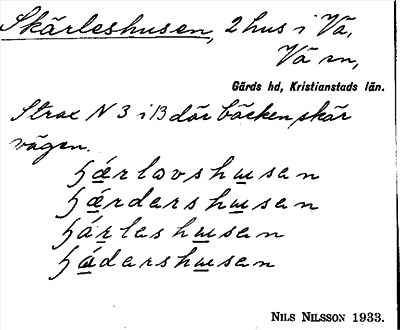 Skärleshusen, 2 hus i Vä,
Vä sn,
Gärds hd, Kristianstads län.
Strax N 3 i B där bäcken skär
vägen.
hærlavshusen
hærdarshusen
hárleshusen
hádarshusen
NILS NILSSON 1933.